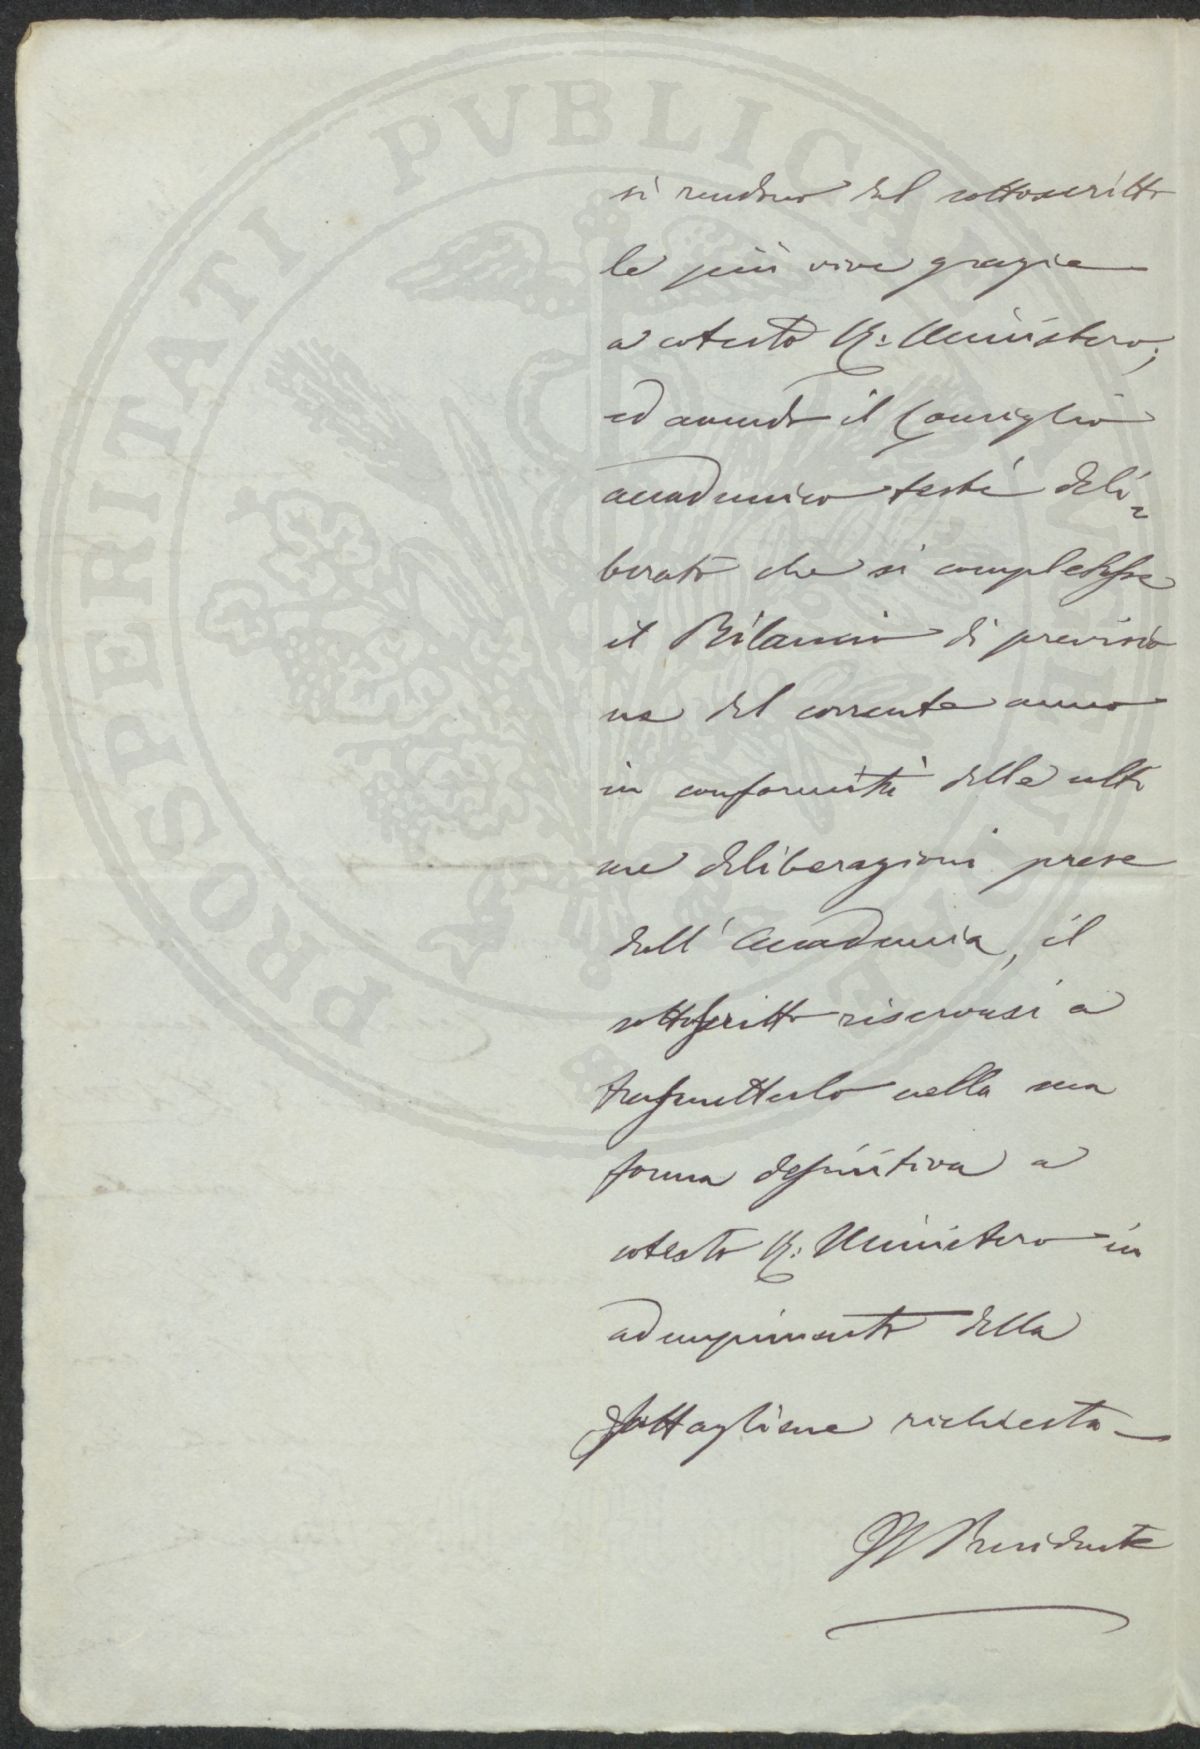 PROSPERITATI PVBLICAE AVGENDAE
si rendono dal sottoscritto
le più vive grazie
a cotesto R: Ministero;
ed avendo il Consiglio
accademico testé deli=
berato che si completasse
il Bilancio di previsio
ne del corrente anno
in conformità delle ulti
me deliberazioni prese
dall'Accademia, il
sottoscritto riservasi a
trasmetterlo nella sua
forma definitiva a
cotesto R: Ministero in
adempimento della
fattagliene richiesta
Il Presidente